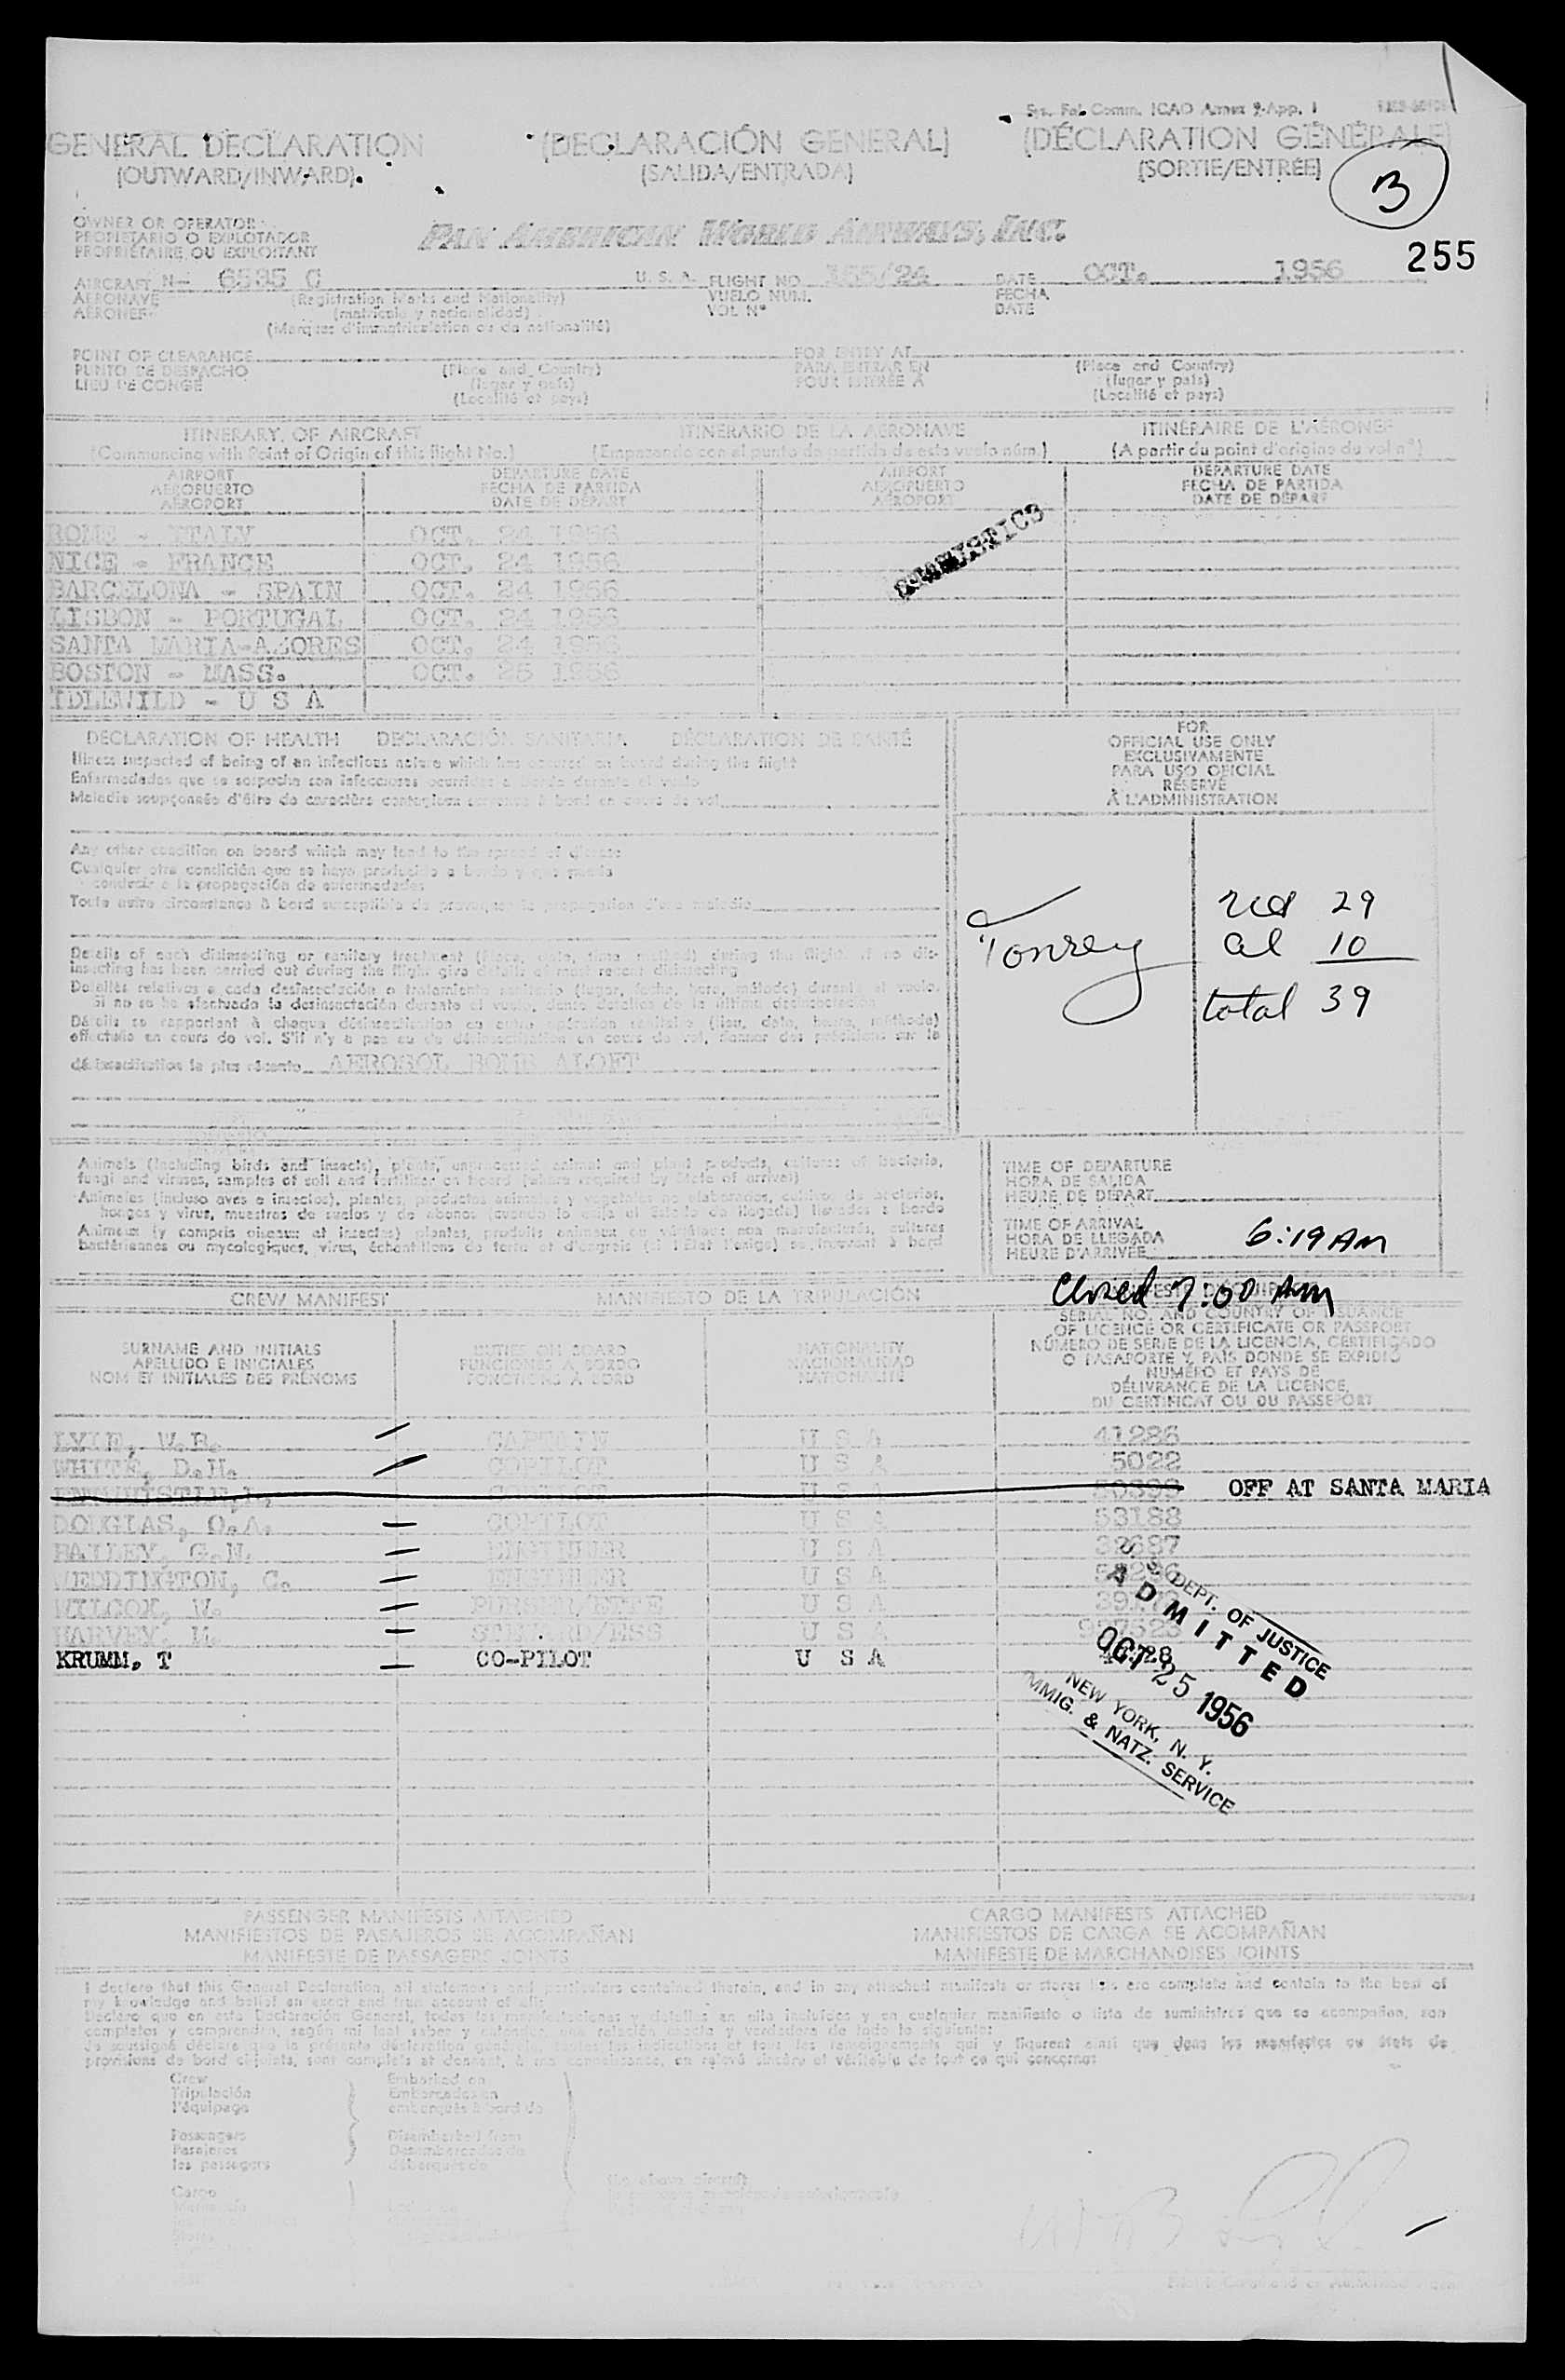 Sys. Fol. Comm. ICAO Annex 9-App. 1
GENERAL DECLARATION (DECLARACIÓN GENERAL) (DÉCLARATION GÉNÉRALE)
(OUTWARD/INWARD) (SALIDA/ENTRADA) (SORTIE/ENTRÉE)
3
OWNER OR OPERATOR
PROPIETARIO O EXPLOTADOR
PROPRIÉTAIRE OU EXPLOITANT
PAN AMERICAN WORLD AIRWAYS, INC.
255
AIRCRAFT N- 6535 C U. S. A. FLIGHT NO. 155/24 DATE OCT. 1956
AERONAVE (Registration Marks and Nationality) VUELO NUM. FECHA
AÉRONEF (matrícula y nacionalidad) VOL N° DATE
(Marques d'immatriculation ou de nationalité)
POINT OF CLEARANCE FOR ENTRY AT
PUNTO DE DESPACHO (Place and Country) PARA ENTRAR EN (Place and Country)
LIEU DE CONGÉ (lugar y país) POUR ENTRÉE À (lugar y país)
(Localité et pays) (Localité et pays)
ITINERARY OF AIRCRAFT ITINERARIO DE LA AERONAVE ITINÉRAIRE DE L'AÉRONEF
(Commencing with Point of Origin of this flight No.) (Empezando con el punto de partida de este vuelo núm.) (A partir du point d'origine du vol n°)
AIRPORT DEPARTURE DATE AIRPORT DEPARTURE DATE
AEROPUERTO FECHA DE PARTIDA AEROPUERTO FECHA DE PARTIDA
AÉROPORT DATE DE DÉPART AÉROPORT DATE DE DÉPART
ROME - ITALY OCT. 24 1956
NICE - FRANCE OCT. 24 1956
BARCELONA - SPAIN OCT. 24 1956
LISBON - PORTUGAL OCT. 24 1956
SANTA MARIA-AZORES OCT. 24 1956
BOSTON - MASS. OCT. 25 1956
IDLEWILD - U S A
DECLARATION OF HEALTH DECLARACIÓN SANITARIA DÉCLARATION DE SANTÉ
Illness suspected of being of an infectious nature which has occurred on board during the flight
Enfermedades que se sospecha son infecciosas ocurridas a bordo durante el vuelo
Maladie soupçonnée d'être de caractère contagieux survenue à bord en cours de vol
FOR
OFFICIAL USE ONLY
EXCLUSIVAMENTE
PARA USO OFICIAL
RÉSERVÉ
À L'ADMINISTRATION
Any other condition on board which may lead to the spread of disease
Cualquier otra condición que se haya producido a bordo y que pueda
conducir a la propagación de enfermedades
Toute autre circonstance à bord susceptible de provoquer la propagation d'une maladie
Tonrey
usa 29
al 10
total 39
Details of each disinsecting or sanitary treatment (place, date, time, method) during the flight. If no dis-
insecting has been carried out during the flight give details of most recent disinsecting
Detalles relativos a cada desinsectación o tratamiento sanitario (lugar, fecha, hora, método) durante el vuelo.
Si no se ha efectuado la desinsectación durante el vuelo, dense detalles de la última desinsectación
Détails se rapportant à chaque désinsectisation ou autre opération sanitaire (lieu, date, heure, méthode)
effectuée en cours de vol. S'il n'y a pas eu de désinsectisation en cours de vol, donner des précisions sur la
désinsectisation la plus récente AEROSOL BOMB ALOFT
Animals (including birds and insects), plants, unprocessed animal and plant products, cultures of bacteria,
fungi and viruses, samples of soil and fertilizer on board (where required by State of arrival)
Animales (incluso aves e insectos), plantas, productos animales y vegetales no elaborados, cultivos de bacterias,
hongos y virus, muestras de suelos y de abonos (cuando lo exija el Estado de llegada) llevados a bordo
Animaux (y compris oiseaux et insectes) plantes, produits animaux ou végétaux non manufacturés, cultures
bactériennes ou mycologiques, virus, échantillons de terre et d'engrais (si l'État l'exige) se trouvant à bord
TIME OF DEPARTURE
HORA DE SALIDA
HEURE DE DÉPART
TIME OF ARRIVAL
HORA DE LLEGADA
HEURE D'ARRIVÉE
6:19 AM
Closed 7:00 AM
CREW MANIFEST MANIFIESTO DE LA TRIPULACIÓN
SURNAME AND INITIALS
APELLIDO E INICIALES
NOM ET INITIALES DES PRÉNOMS
DUTIES ON BOARD
FUNCIONES A BORDO
FONCTIONS À BORD
NATIONALITY
NACIONALIDAD
NATIONALITÉ
SERIAL NO. AND COUNTRY OF ISSUANCE
OF LICENCE OR CERTIFICATE OR PASSPORT
NÚMERO DE SERIE DE LA LICENCIA, CERTIFICADO
O PASAPORTE Y PAÍS DONDE SE EXPIDIÓ
NUMÉRO ET PAYS DE
DÉLIVRANCE DE LA LICENCE,
DU CERTIFICAT OU DU PASSEPORT
LYLE, W.B. CAPTAIN U S A 41286
WHITE, D.H. COPILOT U S A 5022
COPILOT U S A OFF AT SANTA MARIA
DOUGLAS, O.A. COPILOT U S A 53188
BAILEY, G.N. ENGINEER U S A
WEDDINGTON, C. ENGINEER U S A
WILCOX, W. PURSER/ETTE U S A
HARVEY, M. U S A
KRUMM, T CO-PILOT U S A
U. S. DEPT. OF JUSTICE
ADMITTED
OCT 25 1956
NEW YORK, N. Y.
IMMIG. & NATZ. SERVICE
PASSENGER MANIFESTS ATTACHED CARGO MANIFESTS ATTACHED
MANIFIESTOS DE PASAJEROS SE ACOMPAÑAN MANIFIESTOS DE CARGA SE ACOMPAÑAN
MANIFESTE DE PASSAGERS JOINTS MANIFESTE DE MARCHANDISES JOINTS
I declare that this General Declaration, all statements and particulars contained therein, and in any attached manifests or stores lists are complete and contain to the best of
my knowledge and belief an exact and true account of all:
Declaro que en esta Declaración General, todas las manifestaciones y detalles en ella incluidos y en cualquier manifiesto o lista de suministros que se acompañan, son
completos y comprenden, según mi leal saber y entender, una relación exacta y verdadera de todo lo siguiente:
Je soussigné déclare que la présente déclaration générale, toutes les indications et tous les renseignements qui y figurent ainsi que dans les manifestes ou états de
provisions de bord ci-joints, sont complets et donnent, à ma connaissance, un relevé sincère et véritable de tout ce qui concerne:
Crew Embarked on
Tripulación Embarcados en
l'équipage embarqués à bord de
Passengers Disembarked from
Pasajeros Desembarcados de
les passagers débarqués de
the above aircraft
Cargo